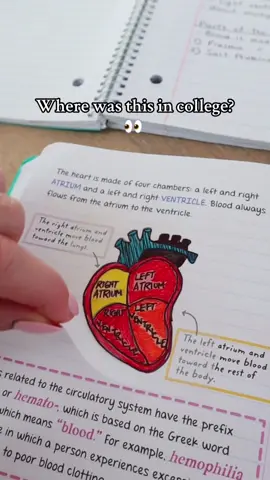 Blood is mad
1) Plasma
2) Cell Fragmen
Where was this in college?
👀
The heart is made of four chambers: a left and right
ATRIUM and a left and right VENTRICLE. Blood always
flows from the atrium to the ventricle.
The right atrium and
ventricle move blood
toward the lungs.
RIGHT
ATRIUM
LEFT
ATRIUM
RIGHT
LEFT
The left atrium and
ventricle move blood
toward the rest of
the body.
s related to the circulatory system have the prefix
or hemato-, which is based on the Greek word
which means "blood." For example, hemophilia
e in which a person experiences exces
to poor blood clotting